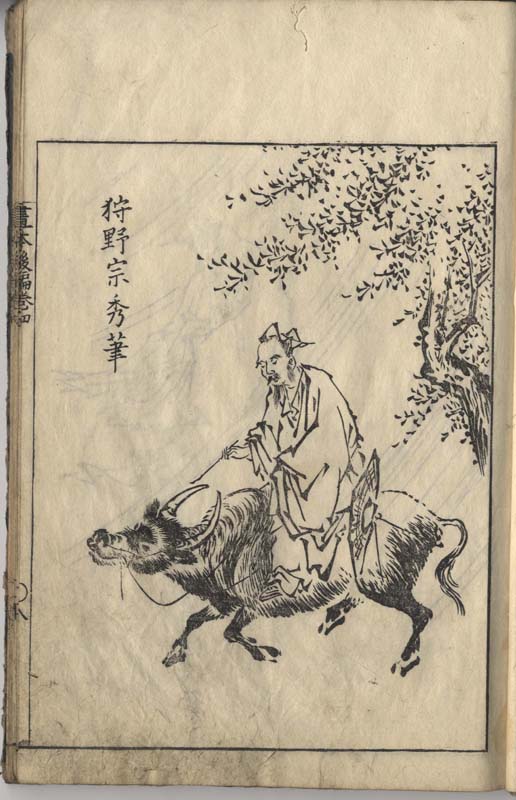 狩野宗秀筆
畫本後編巻四
八